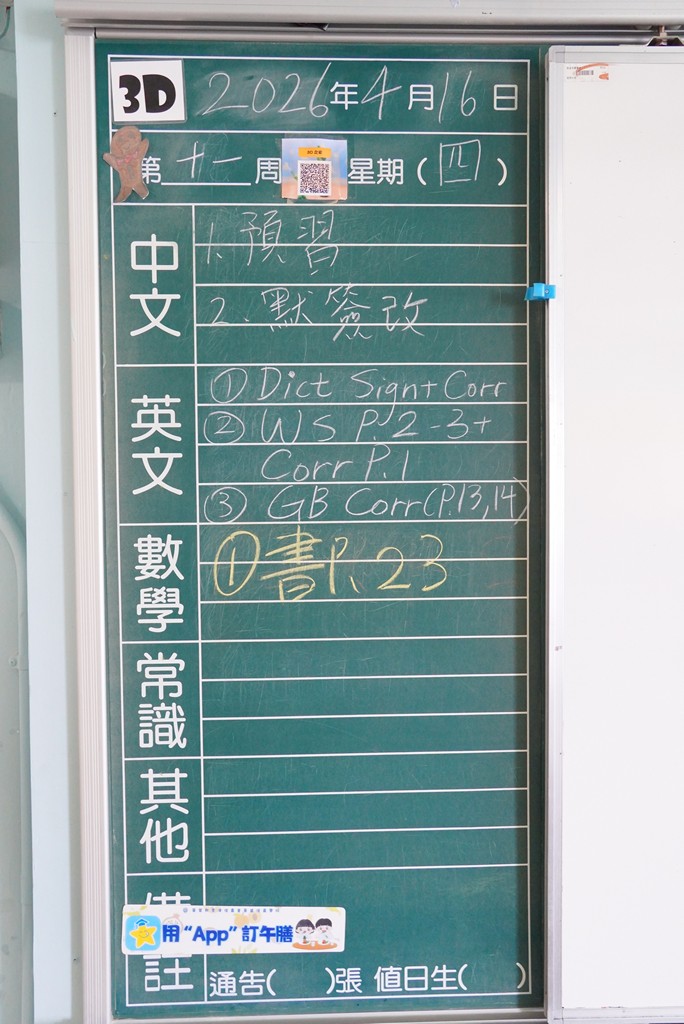 3D 2026年4月16日
第十一周 星期(四)
中文
1. 預習
2. 默簽改
英文
① Dict Sign+Corr
② WS P.2-3+
Corr P.1
③ GB Corr(P.13,14)
數學
① 書P.23
常識
其他
用“App”訂午膳
註
通告( )張 值日生( )